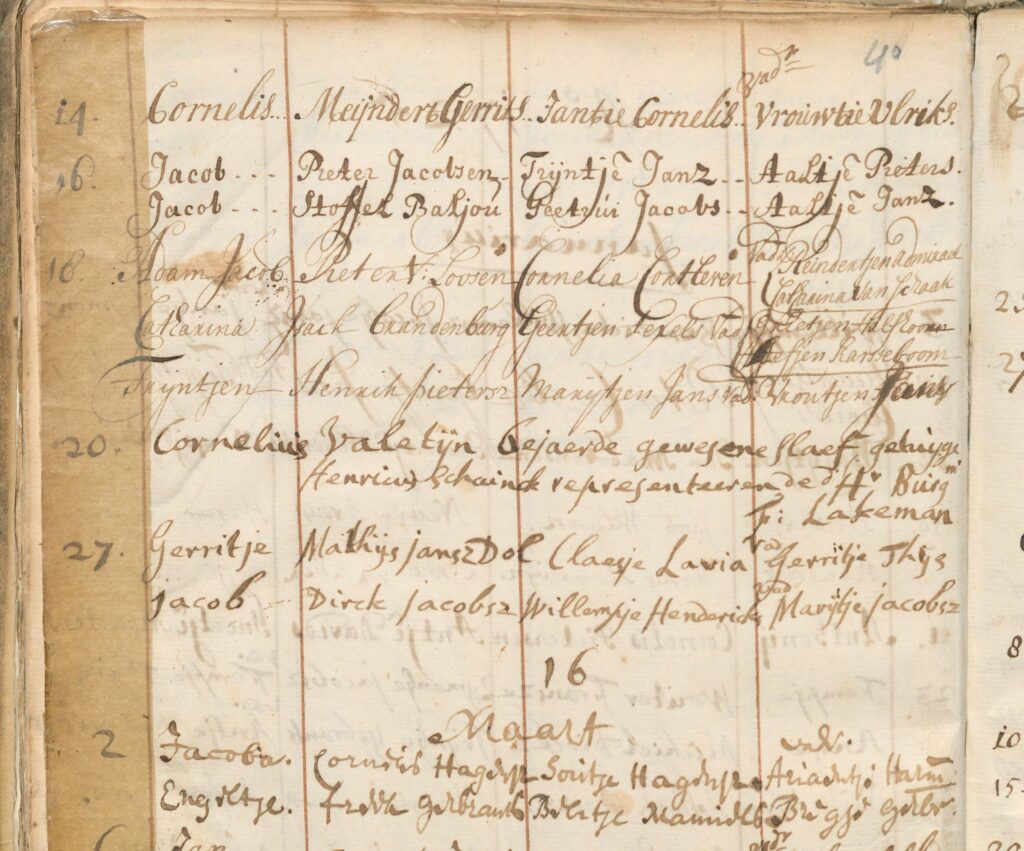 40
vadr
14. Cornelis.. Meijndert Gerrits.. Jantie Cornelis.. Vrouwtie Ulriks.
16. Jacob... Pieter Jacobsen, Trÿntjē Janz.. Aaltjē Pieters.
Jacob... Stoffel Baljou Geetrui Jacobs.. Aaltjē Janz.
18. Adam Jacob Pieter V: Loosen Cornelia Vad Reindentjen admiraal
Catharina van
Catharina Isack Brandenburg Geertjen Texels Vad
Karseboom
Trÿntjen Henrik pietersz Marijtjen Jans Vad. Vroutjen
20. Cornelius Valetijn bejaerde gewesene slaef getuijge
Henricus Schainck representeerende d'Hr Burgm
Lakeman
27. Gerritje Mathijs jansz Dol Claesje Lavia Vad Gerritje Thijs
jacob Dirck jacobsz Willemtje Hendericks vad Marijtje jacobsz
16
Maart
2 Jacoba. Cornelis Hagdijk Hagdijk. vadr. Ariaentje Harm
Engeltje. fredk Gerbrants
Jan vadr